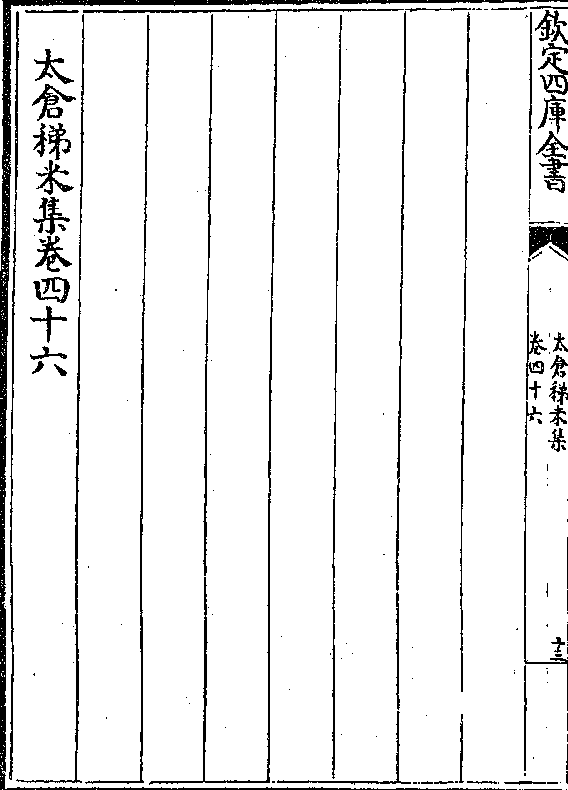 欽定四庫全書
太倉稊米集
卷四十六
十三
太倉稊米集卷四十六